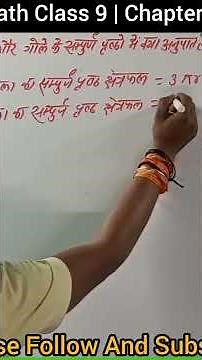 ath Class 9 | Chapter
और गोले के सम्पूर्ण पृष्ठो में क्या अनुपात
का सम्पूर्ण पृष्ठ क्षेत्रफल = 3 πr
का सम्पूर्ण पृष्ठ क्षेत्रफल =
se Follow And Subs